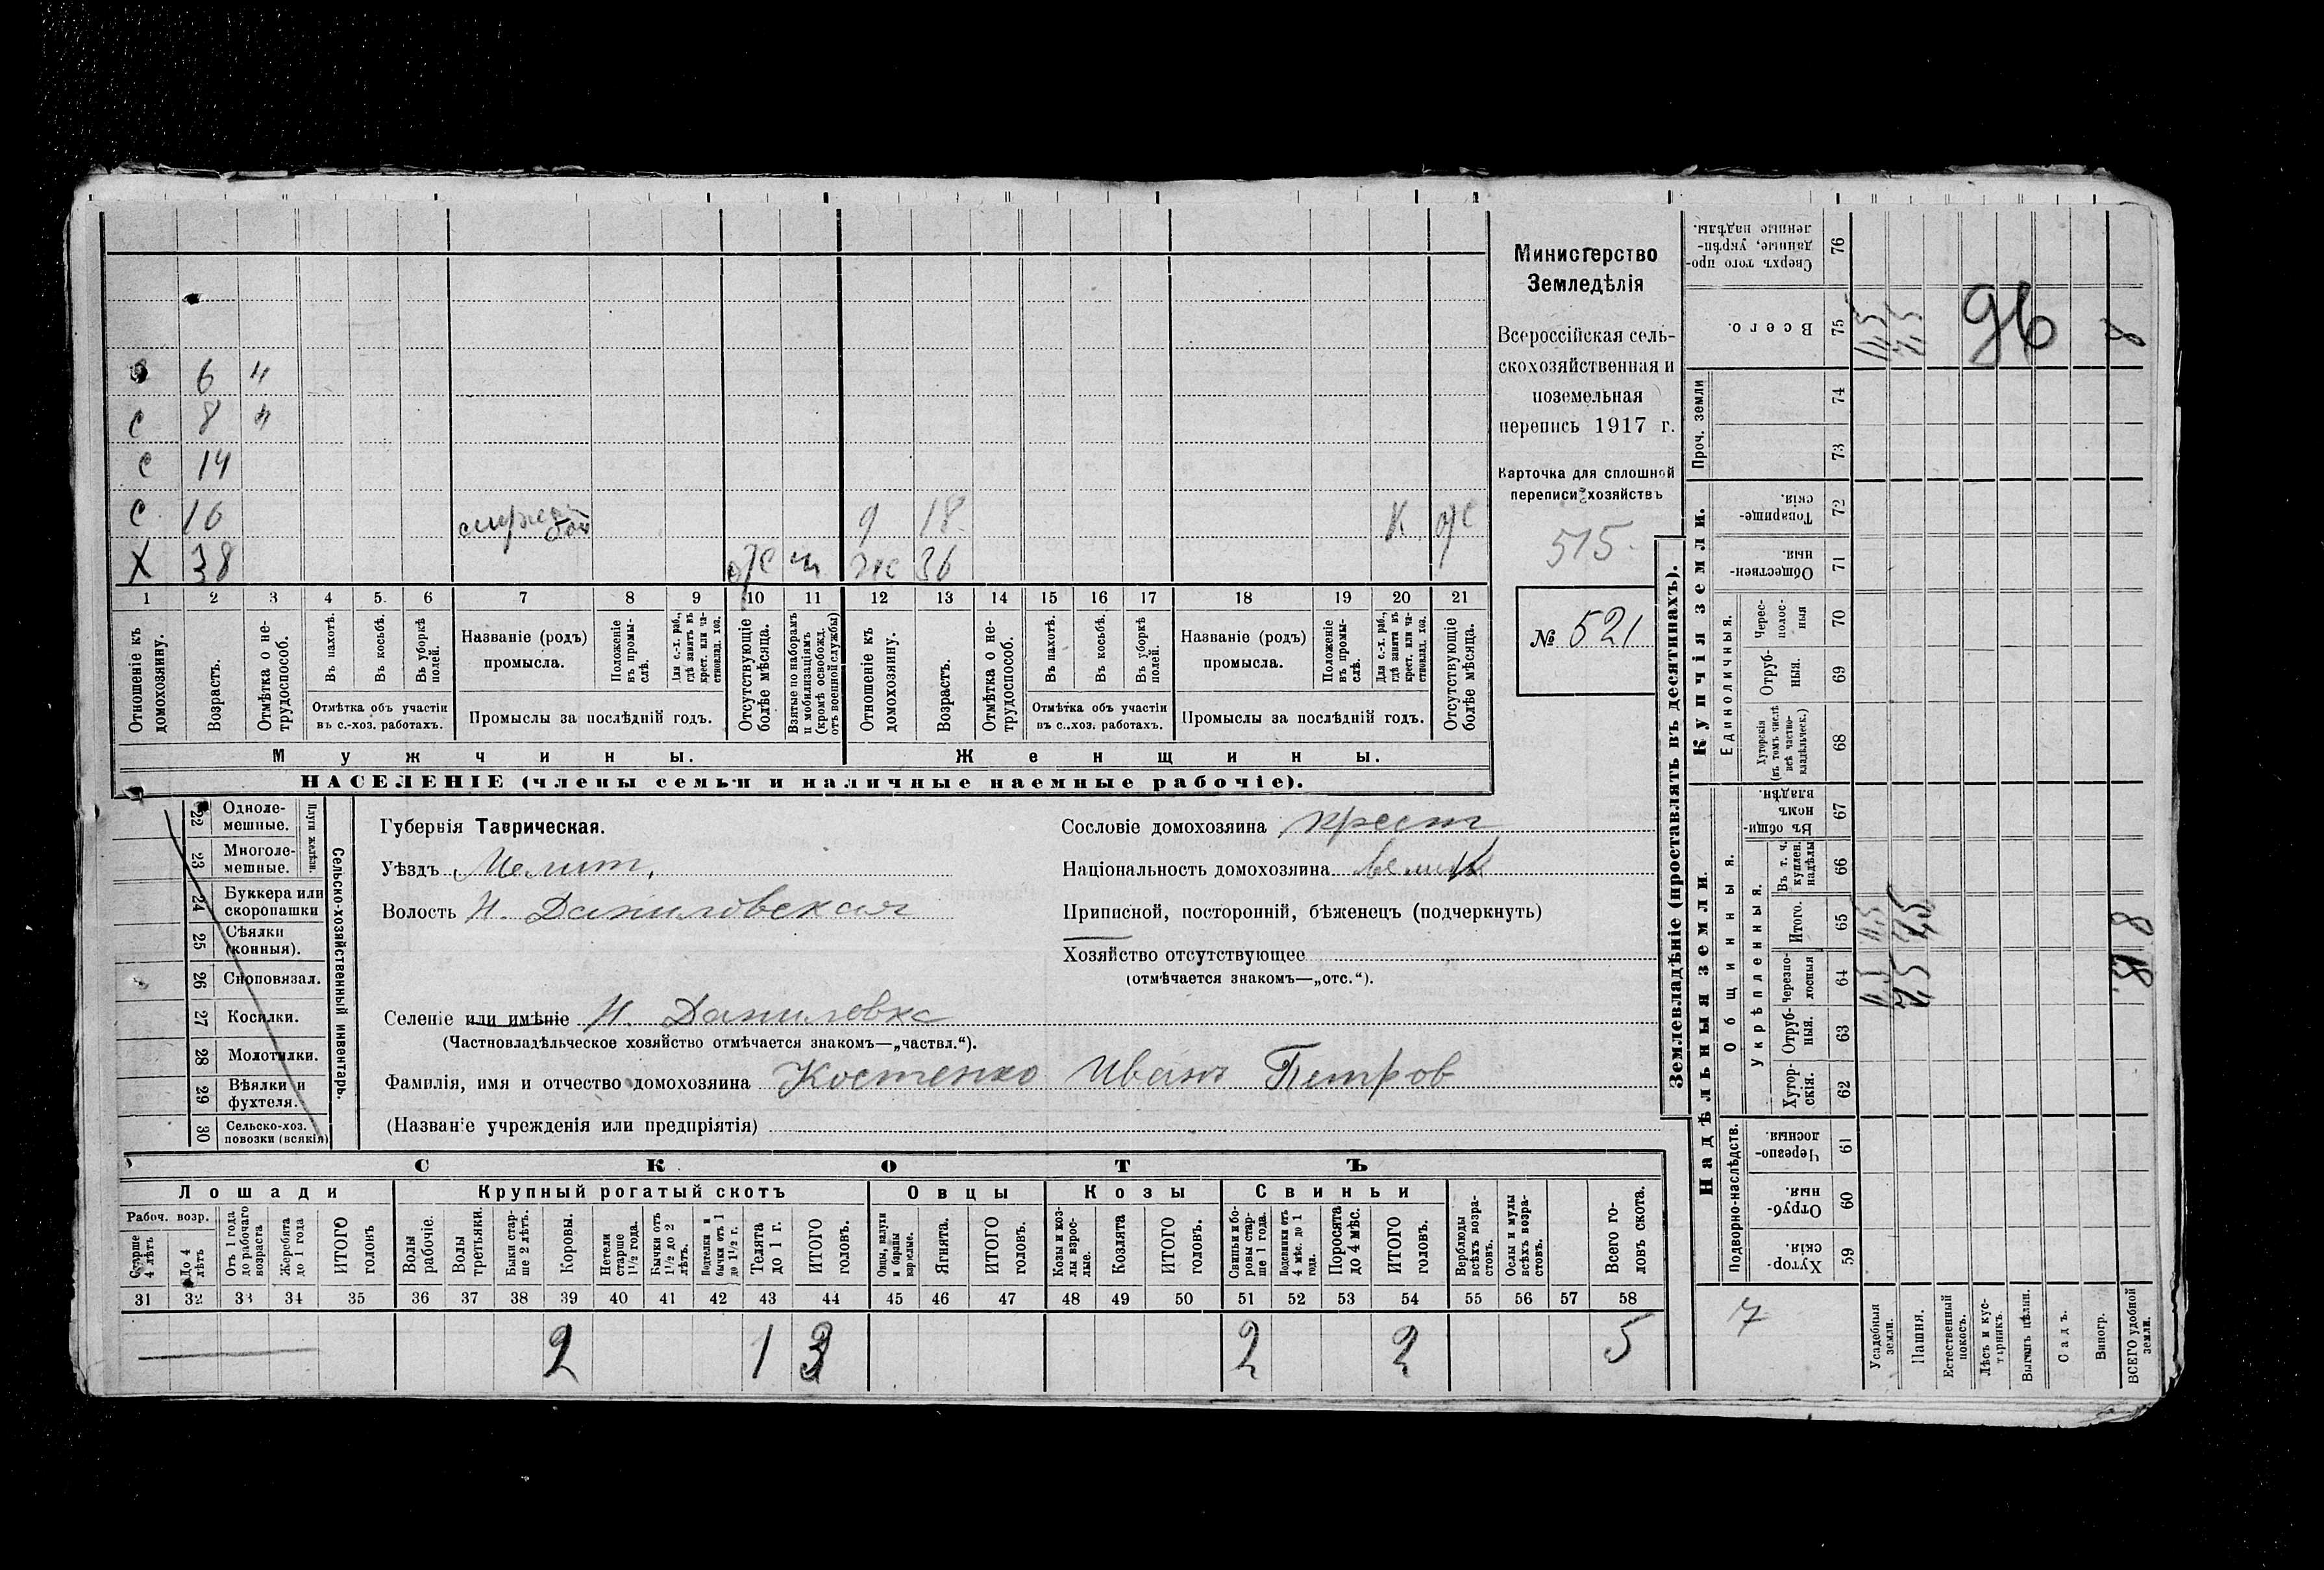 6 "
С 8 "
С 14
С 16 9 18 К
Х 38 36
1 2 3 4 5 6 7 8 9 10 11 12 13 14 15 16 17 18 19 20 21
Отношеніе къ домохозяину.
Возрастъ.
Отмѣтка о не-трудоспособ.
Въ пахотѣ.
Въ косьбѣ.
Въ уборкѣ полей.
Отмѣтка объ участіи въ с.-хоз. работахъ.
Названіе (родъ) промысла.
Положеніе въ промы-слѣ.
Для с.-х. раб., гдѣ занятъ въ крест. или ча-стновлад. хоз.
Промыслы за послѣдній годъ.
Отсутствующіе болѣе мѣсяца.
Взятые по наборамъ и мобилизаціямъ (кромѣ освобожд. отъ военной службы)
Отношеніе къ домохозяину.
Возрастъ.
Отмѣтка о не-трудоспособ.
Въ пахотѣ.
Въ косьбѣ.
Въ уборкѣ полей.
Отмѣтка объ участіи въ с.-хоз. работахъ.
Названіе (родъ) промысла.
Положеніе въ промы-слѣ.
Для с.-х. раб., гдѣ занята въ крест. или ча-стновлад. хоз.
Промыслы за послѣдній годъ.
Отсутствующіе болѣе мѣсяца.
Мужчины. Женщины.
НАСЕЛЕНІЕ (члены семьи и наличные наемные рабочіе).
Министерство
Земледѣлія
Всероссійская сель-
скохозяйственная и
поземельная
перепись 1917 г.
Карточка для сплошной
переписи хозяйствъ
515
№ 521
22 Одноле-мешные.
23 Многоле-мешные.
Плуги желѣзн.
24 Буккера или скоропашки
25 Сѣялки (конныя).
26 Сноповязал.
27 Косилки.
28 Молотилки.
29 Вѣялки и фухтеля.
30 Сельско-хоз. повозки (всякія)
Сельско-хозяйственный инвентарь.
Губернія Таврическая.
Уѣздъ Мелит.
Волость Н. Даниловская
Сословіе домохозяина крест
Національность домохозяина
Приписной, посторонній, бѣженецъ (подчеркнуть)
Хозяйство отсутствующее
(отмѣчается знакомъ—„отс.“).
Селеніе или имѣніе Н. Даниловка
(Частновладѣльческое хозяйство отмѣчается знакомъ—„частвл.“).
Фамилія, имя и отчество домохозяина Костенко Иванъ Петров
(Названіе учрежденія или предпріятія)
СКОТЪ
Лошади Крупный рогатый скотъ Овцы Козы Свиньи
Рабоч. возр.
Старше 4 лѣтъ
До 4 лѣтъ
Отъ 1 года до рабочаго возраста
Жеребята до 1 года
ИТОГО головъ
Волы рабочіе.
Волы третьяки.
Быки стар-ше 2 лѣтъ.
Коровы.
Нетели старше 1½ года.
Бычки отъ 1½ до 2 лѣтъ.
Подтелки и бычки отъ 1 до 1½ г.
Телята до 1 г.
ИТОГО головъ.
Овцы, валухи и бараны взрослые.
Ягнята.
ИТОГО головъ.
Козы и коз-лы взрос-лые.
Козлята
ИТОГО головъ.
Свиньи и бо-ровы стар-ше 1 года.
Подсвинки отъ 4 мѣс. до 1 года.
Поросята до 4 мѣс.
ИТОГО головъ.
Верблюды всѣхъ возра-стовъ.
Ослы и мулы всѣхъ возра-стовъ.
Всего го-ловъ скота.
31 32 33 34 35 36 37 38 39 40 41 42 43 44 45 46 47 48 49 50 51 52 53 54 55 56 57 58
2 1 3 2 2 5
Землевладѣніе (проставлять въ десятинахъ).
Купчія земли.
Надѣльныя земли.
Сверхъ того про-данные, укрѣп-ленные надѣлы. 76
Всего. 75
Проч. земли 74 73
Товарище-скія. 72
Обществен-ныя. 71
Единоличныя.
Черес-полос-ныя 70
Отруб-ныя. 69
Хуторскія (въ томъ числѣ всѣ частно-владѣльческ.) 68
Общинныя.
Въ общи-номъ владѣн. 67
Укрѣпленныя.
Въ т. ч. куплен. надѣлы 66
Итого. 65
Черезпо-лосныя 64
Отруб-ныя. 63
Хутор-скія. 62
Подворно-наслѣдств.
Черезпо-лосныя. 61
Отруб-ныя. 60
Хутор-скія. 59
96
8
7,5
8
7
Усадебныя земли.
Пашня.
Естественный покосъ.
Лѣсъ и кус-тарникъ.
Выгонъ цѣлин.
Садъ.
Виногр.
ВСЕГО удобной земли.